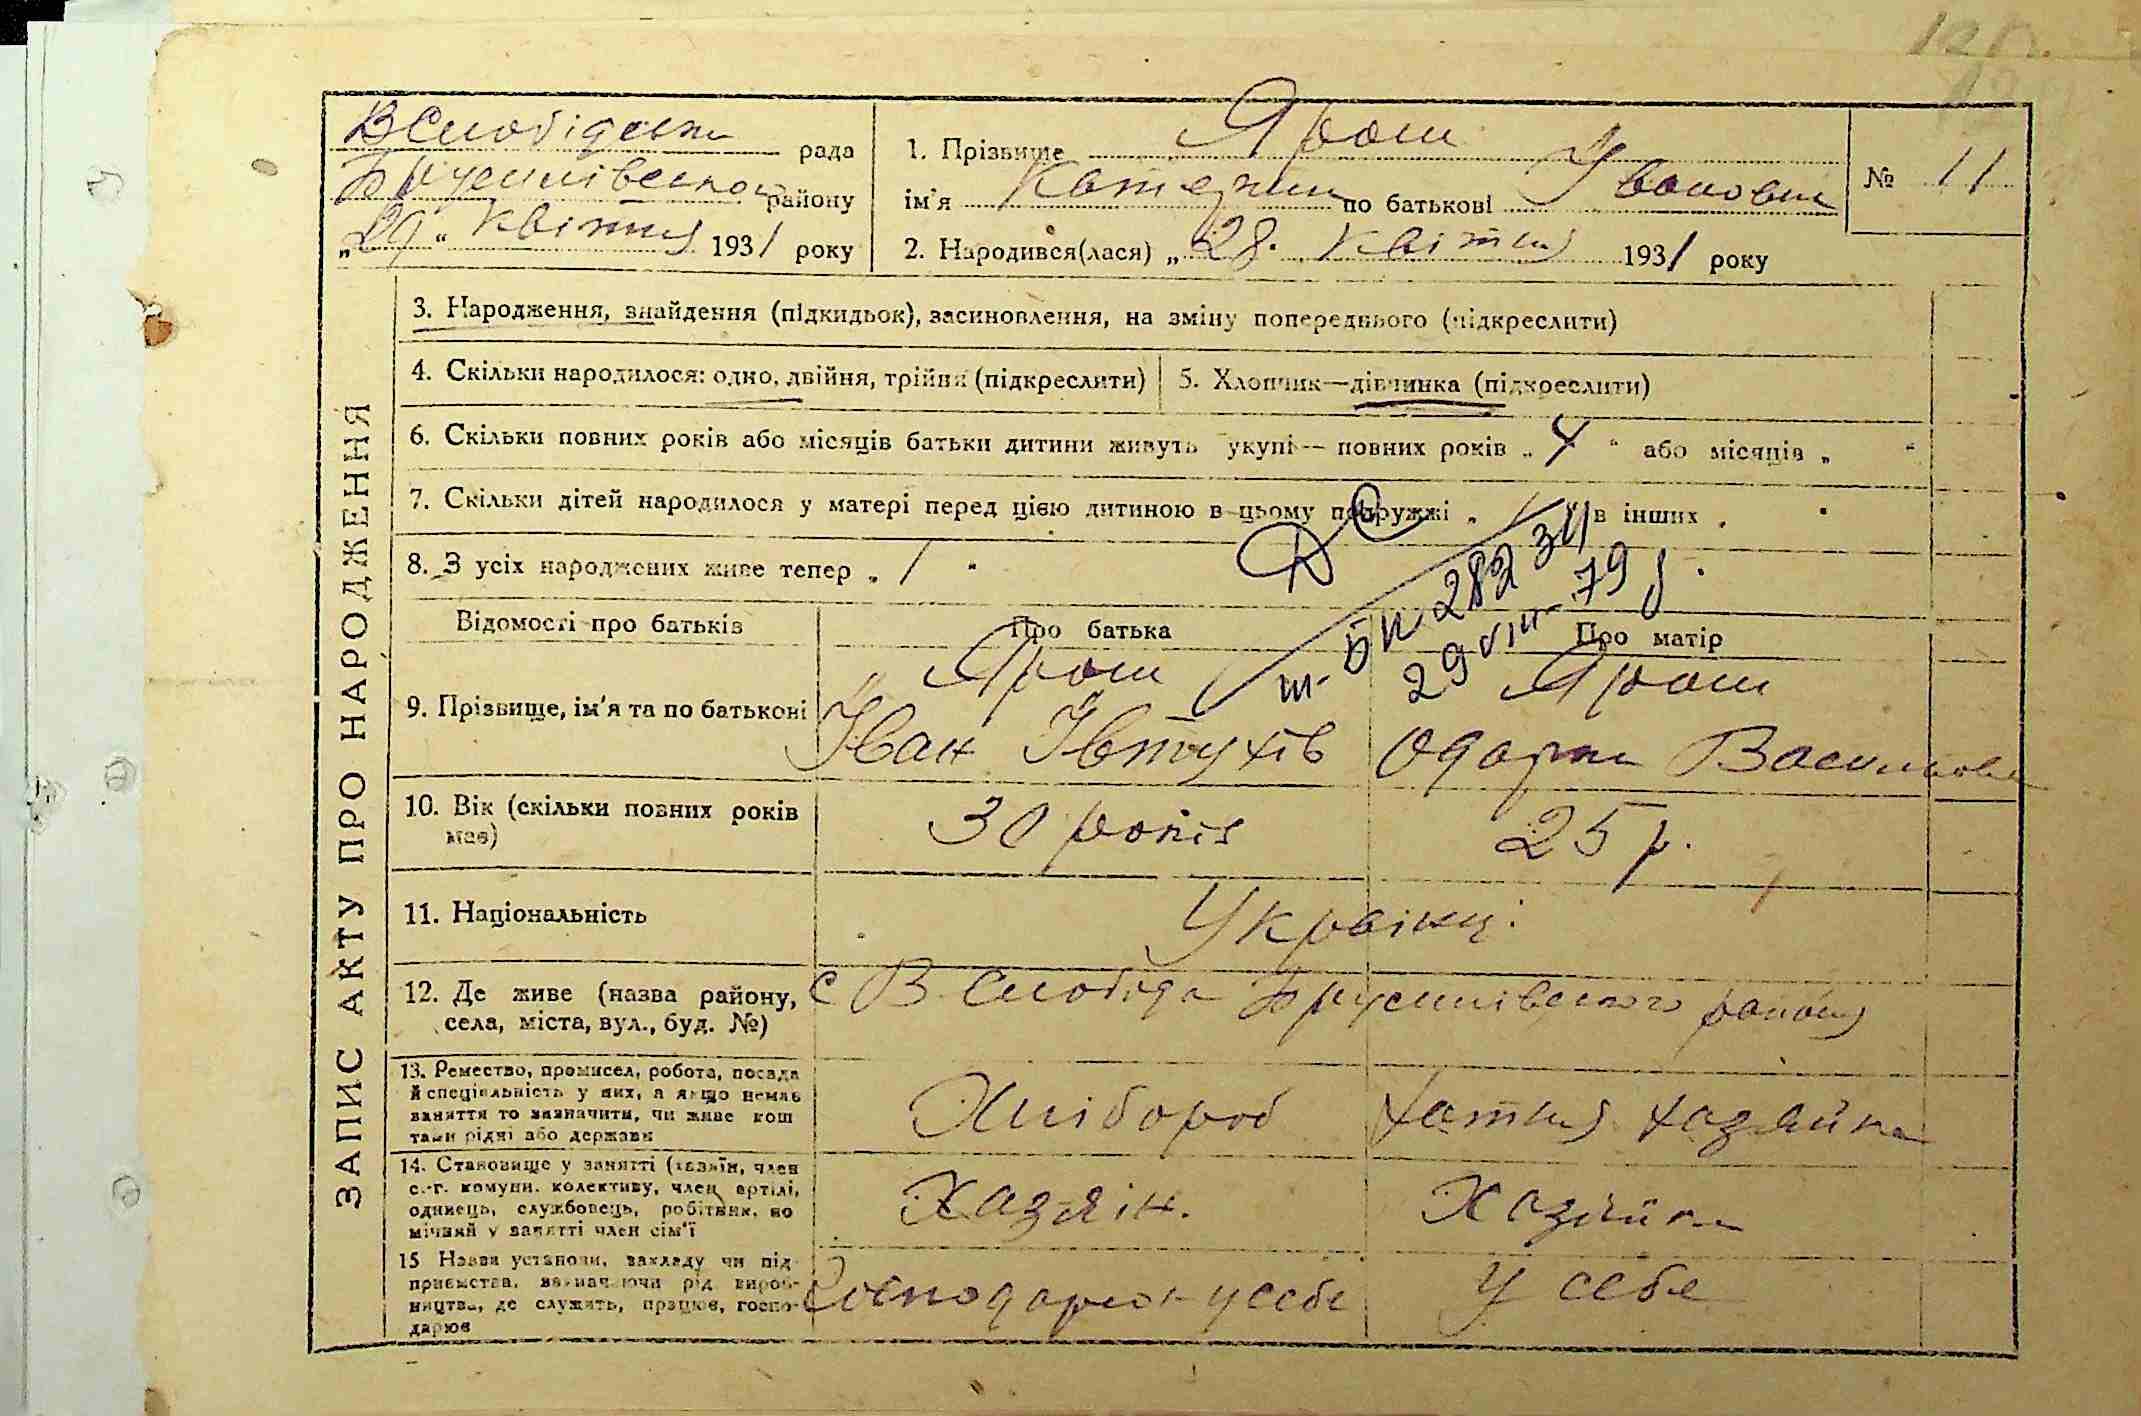 ВСлобідська рада
Брусилівського району
„29“ квітня 1931 року
1. Прізвище Ярош
ім'я Катерина по батькові Івановна
2. Народився(лася) „28. квітня 1931 року
№ 11
ЗАПИС АКТУ ПРО НАРОДЖЕННЯ
3. Народження, знайдення (підкидьок), засиновлення, на зміну попереднього (підкреслити)
4. Скільки народилося: одно, двійня, трійня (підкреслити)
5. Хлопчик—дівчинка (підкреслити)
6. Скільки повних років або місяців батьки дитини живуть укупі — повних років „4“ або місяців „ “
7. Скільки дітей народилося у матері перед цією дитиною в цьому подружжі „1“ в інших „ “
8. З усіх народжених живе тепер „1“
282 34
29 VIII-79
Відомості про батьків
Про батька
Про матір
9. Прізвище, ім'я та по батькові
Ярош
Іван Івтухів
Ярош
Одарка Василівна
10. Вік (скільки повних років має)
30 років
25 р.
11. Національність
Українці
12. Де живе (назва району, села, міста, вул., буд. №)
с В Слобода Брусилівського району
13. Ремество, промисел, робота, посада
й спеціяльність у них, а якщо немає
заняття то зазначити, чи живе кош
тами рідні або держави
Хлібороб
Хатня хазяйка
14. Становище у занятті (хазяїн, член
с.-г. комуни, колективу, член артілі,
одинець, службовець, робітник, по
мічний у занятті член сім'ї
Хазяїн.
Хазяйка
15 Назва установи, закладу чи під-
приємства, зазначаючи рід вироб-
ництва, де служить, працює, госпо-
дарює
у себе
У себе